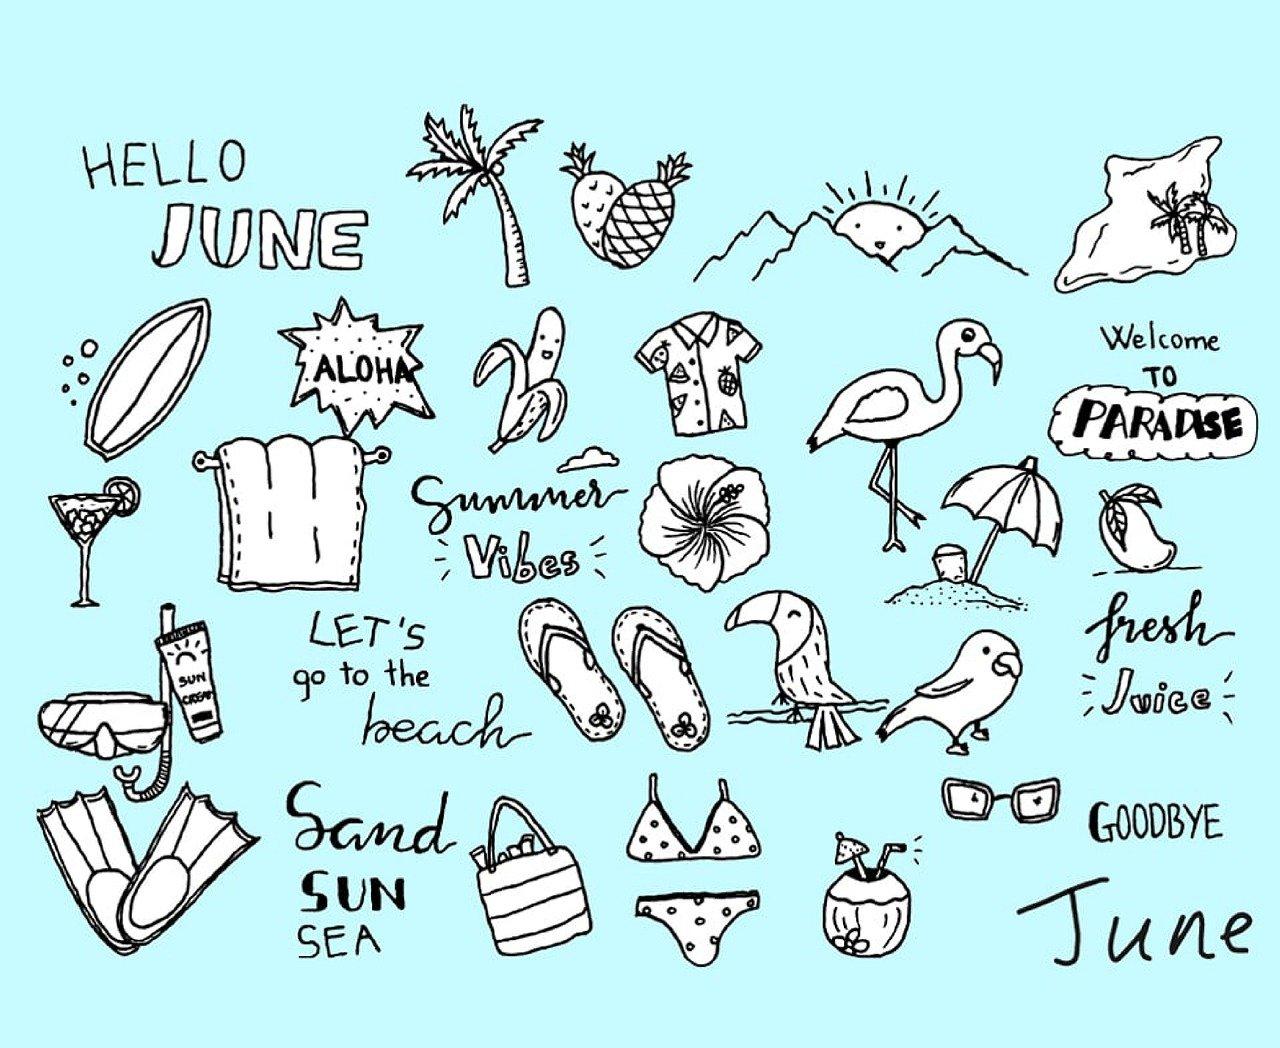 HELLO
JUNE
ALOHA
Welcome
TO
PARADISE
Summer
Vibes
SUN
CREAM
LET'S
go to the
beach
fresh
Juice
Sand
SUN
SEA
GOODBYE
June